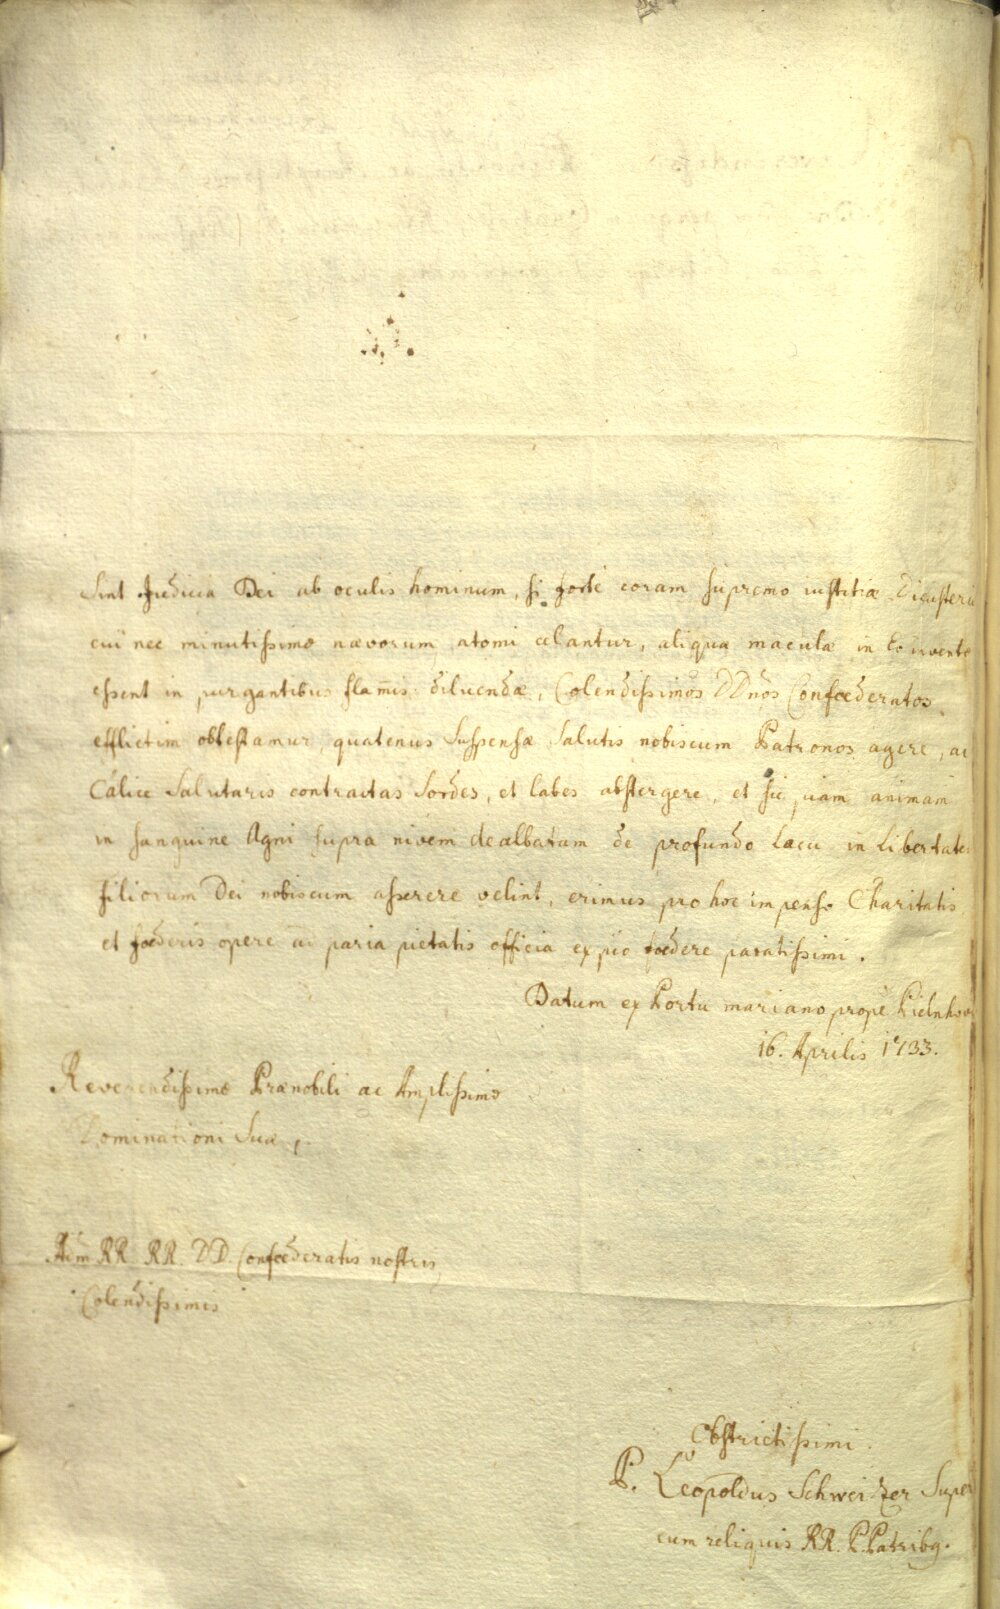 Sint Judicia Dei ab oculis hominum, si forte coram supremo iustitiæ Dicasterio
cui nec minutissimæ nævorum atomi celantur, aliqua maculæ in Eo inventæ
essent in purgantibus flam̄is diluendæ, Colendissimos DDnos Confœderatos
efflictim obtestamur, quatenus suspensæ salutis nobiscum Patronos agere, ac
Calice Salutaris contractas sordes, et labes abstergere, et sic piam animam
in sanguine Agni supra nivem dealbatam de profundo lacu in libertatem
filiorum Dei nobiscum asserere velint, erimus pro hoc impenso Charitatis
et fœderis opere ad paria pietatis officia ex pio fœdere paratissimi.
Datum ex Portu mariano prope
16. Aprilis 1733.
Reverendissimæ Prænobili ac Amplissimæ
Dominationi Suæ,
Adm RR. RR. DD. Confœderatis nostris
Colendissimis
Obstrictissimi.
P. Leopoldus Schweitzer Super
cum reliquis RR. P.Patribq.